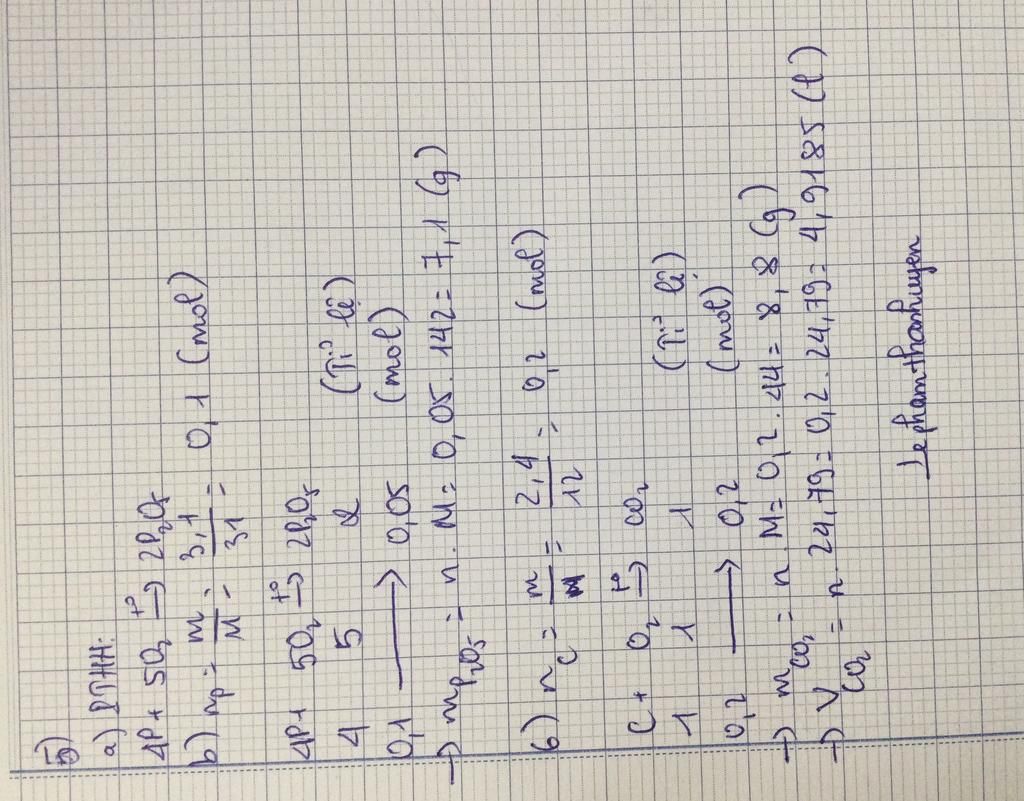 5)
a) PTHH:
4P + 5O₂ →(t°) 2P₂O₅
b) nₚ = m/M = 3,1/31 = 0,1 (mol)
4P + 5O₂ →(t°) 2P₂O₅
4 5 2 (Tỉ lệ)
0,1 ⟶ 0,05 (mol)
→ m P₂O₅ = n . M = 0,05 . 142 = 7,1 (g)
6) n C = m/M = 2,4/12 = 0,2 (mol)
C + O₂ →(t°) CO₂
1 1 1 (Tỉ lệ)
0,2 ⟶ 0,2 (mol)
→ m CO₂ = n . M = 0,2 . 44 = 8,8 (g)
→ V CO₂ = n . 24,79 = 0,2 . 24,79 = 4,9185 (l)
Lephamthanhuyen